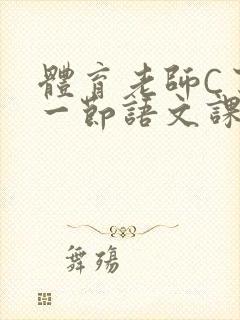 體育老師C
一節語文課
舞殤